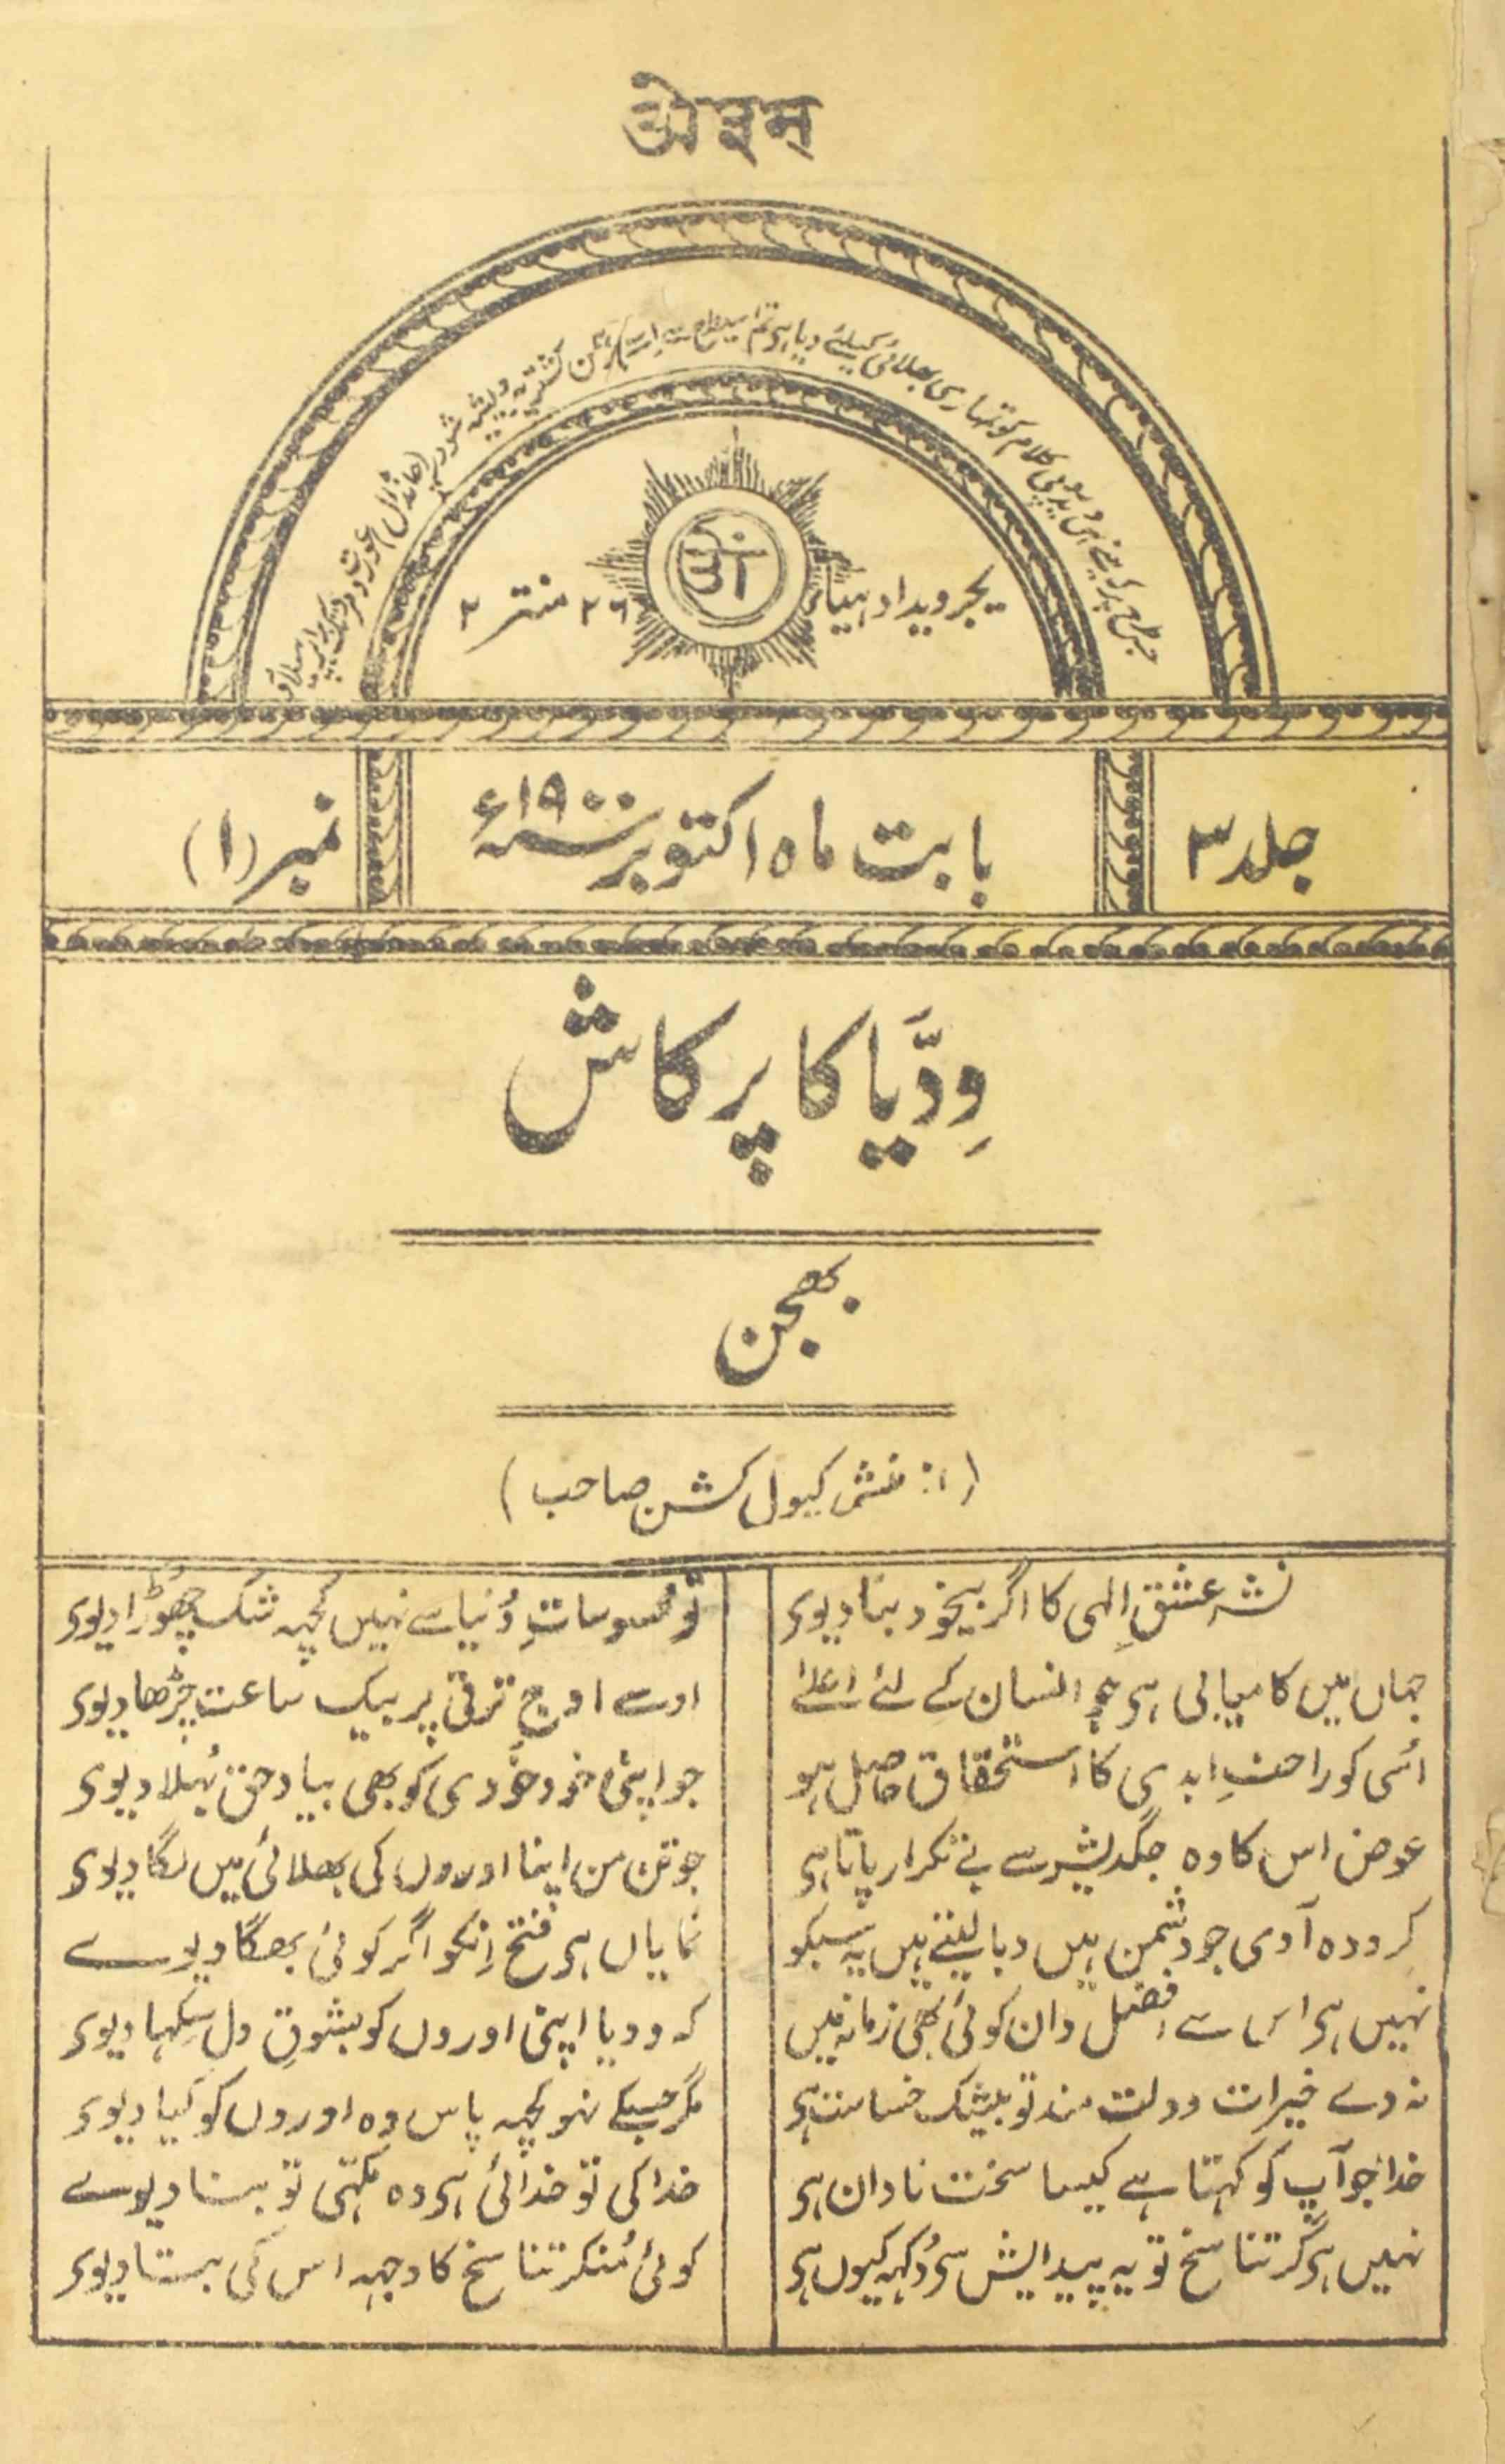 ओ३म्
جس طرح پر کہ مینے اس وید یعنی کلام کو تمہاری بھلائی کیلئے دیا ہو تم اسیطرح سے اسے برہمن کشتریہ ویشیہ شودر چانڈال عورت و مرد
یجروید ادہیاے ۲۶ منتر ۲
ओं
جلد ۳
بابت ماہ اکتوبر سنہ ۱۹۰۰ء
نمبر (۱)
وِدّیا کا پرکاش
بھجن
(از منشی کیول کشن صاحب)
نشہ عشقِ الہی کا اگر بیخود بنا دیوی تو محسوساتِ دُنیا سے نہیں کُچہہ شک چُھوڑا دیوی
جہاں میں کامیابی ہی جو انسان کے لئے اعلےٰ اوسے اوجِ ترقی پر بیک ساعت چڑھا دیوی
اُسی کو راحتِ ابدی کا استحقاق حاصل ہو جو اپنی خود خودی کو بھی بیاد حق بُھلا دیوی
عوض اس کا وہ جگدیشر سے بے تکرار پاتا ہی جو تن من اپنا اوروں کی بھلائی میں لگا دیوی
کرودہ آدی جو دشمن ہیں دبا لیتے ہیں یہ سبکو نمایاں ہو فتح اِنکو اگر کوئی بھگا دیوے
نہیں ہی اس سے افضل دان کوئی بھی زمانہ میں کہ ودیا اپنی اوروں کو بشوقِ دل سِکہا دیوی
نہ دے خیرات دولت مند تو بیشک خساست ہی مگر جسکے نہو کچہہ پاس وہ اوروں کو کیا دیوی
خدا جو آپ کو کہتا ہے کیسا سخت نادان ہی خدا کی تو خدائی ہی وہ مکہی تو بنا دیوے
نہیں ہی گر تناسخ تو یہ پیدایش سی دُکہہ کیوں ہی کوئی مُنکر تناسخ کا وجہہ اس کی بتا دیوی